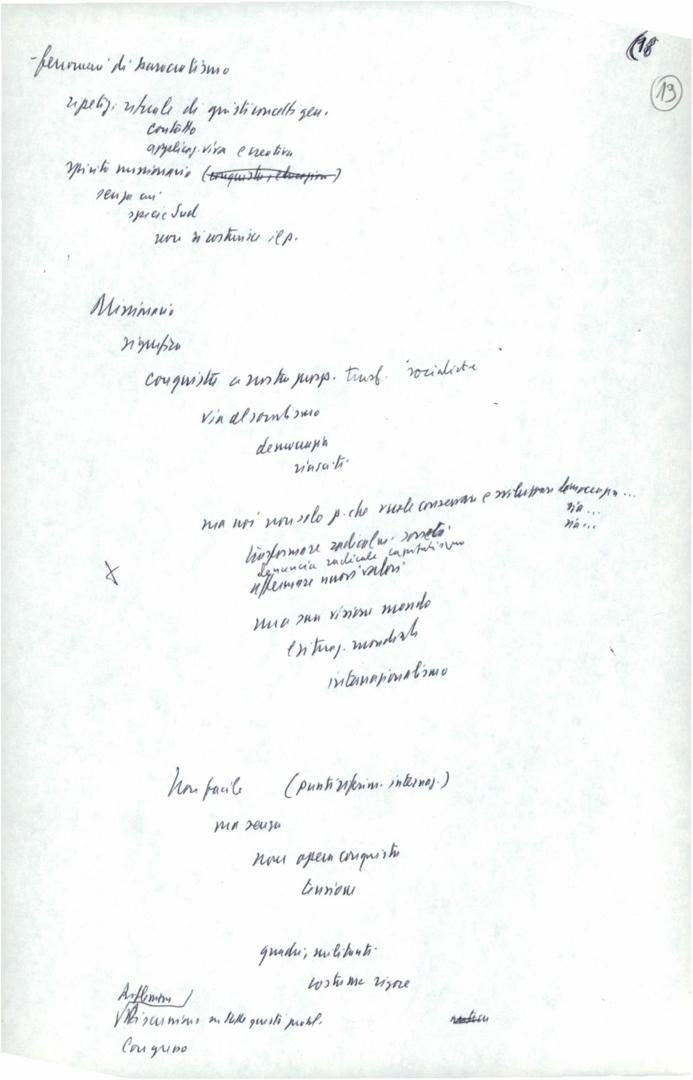 18
19
- fenomeni di burocratismo
ripetiz. rituale di giusti concetti gen.
contatto
applicaz. viva e creativa
spirito missionario (conquista, educazione)
senza cui
specie Sud
non si costruisce il p.
Missionario
significa
conquista a nostra prosp. trasf. socialista
via al socialismo
democrazia
rinascita
ma noi non solo p. che vuole conservare e sviluppare democrazia ...
ria ...
ria ...
trasformare radicalm. società
denuncia radicale capitalismo
affermare nuovi valori
ma una visione mondo
e situaz. mondiale
internazionalismo
Non facile (punti riferim. internaz.)
ma senza
non opera conquista
tensione
quadri, militanti
costume rigore
Riflessione
Discussione su tutti questi probl.
Congresso